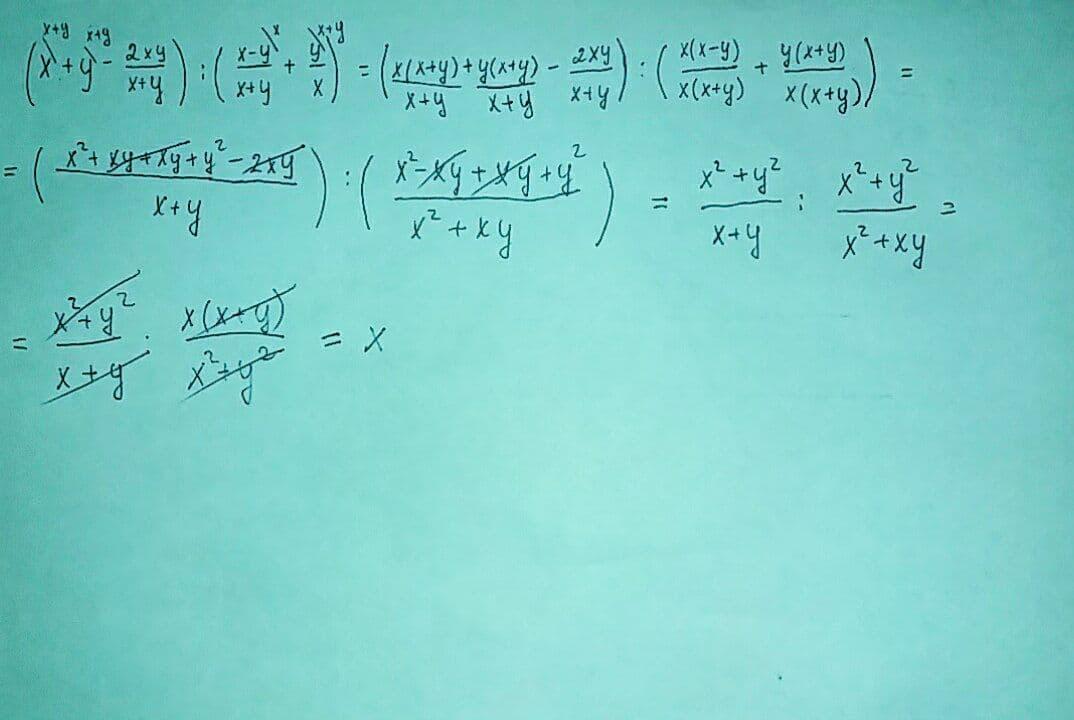 (x^{x+y} + y^{x+y} - \frac{2xy}{x+y}) : (\frac{x-y}{x+y}^{x} + \frac{y}{x}^{x+y}) = (\frac{x(x+y)}{x+y} + \frac{y(x+y)}{x+y} - \frac{2xy}{x+y}) : (\frac{x(x-y)}{x(x+y)} + \frac{y(x+y)}{x(x+y)}) =
= (\frac{x^2+xy+xy+y^2-2xy}{x+y}) : (\frac{x^2-xy+xy+y^2}{x^2+xy}) = \frac{x^2+y^2}{x+y} : \frac{x^2+y^2}{x^2+xy} =
= \frac{x^2+y^2}{x+y} \cdot \frac{x(x+y)}{x^2+y^2} = x